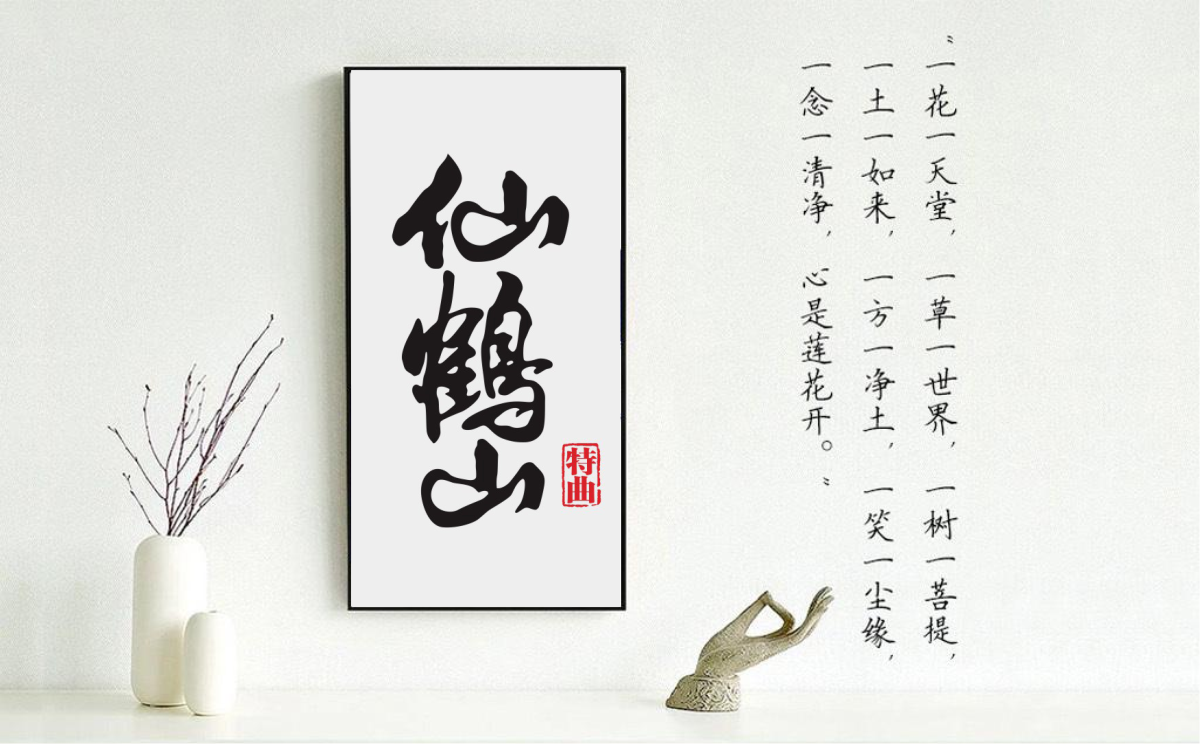 仙鹤山
特曲
“一花一天堂，一草一世界，一树一菩提，
一土一如来，一方一净土，一笑一尘缘，
一念一清净，心是莲花开。”